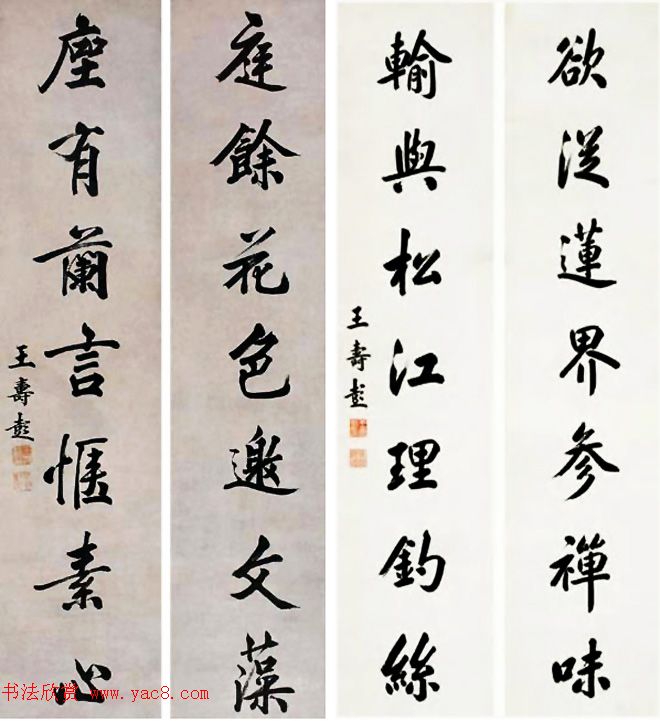 欲從蓮界参禪味
輸與松江理釣絲
王壽彭
庭餘花色邀文藻
座有蘭言愜素心
王壽彭
书法欣赏 www.yac8.com